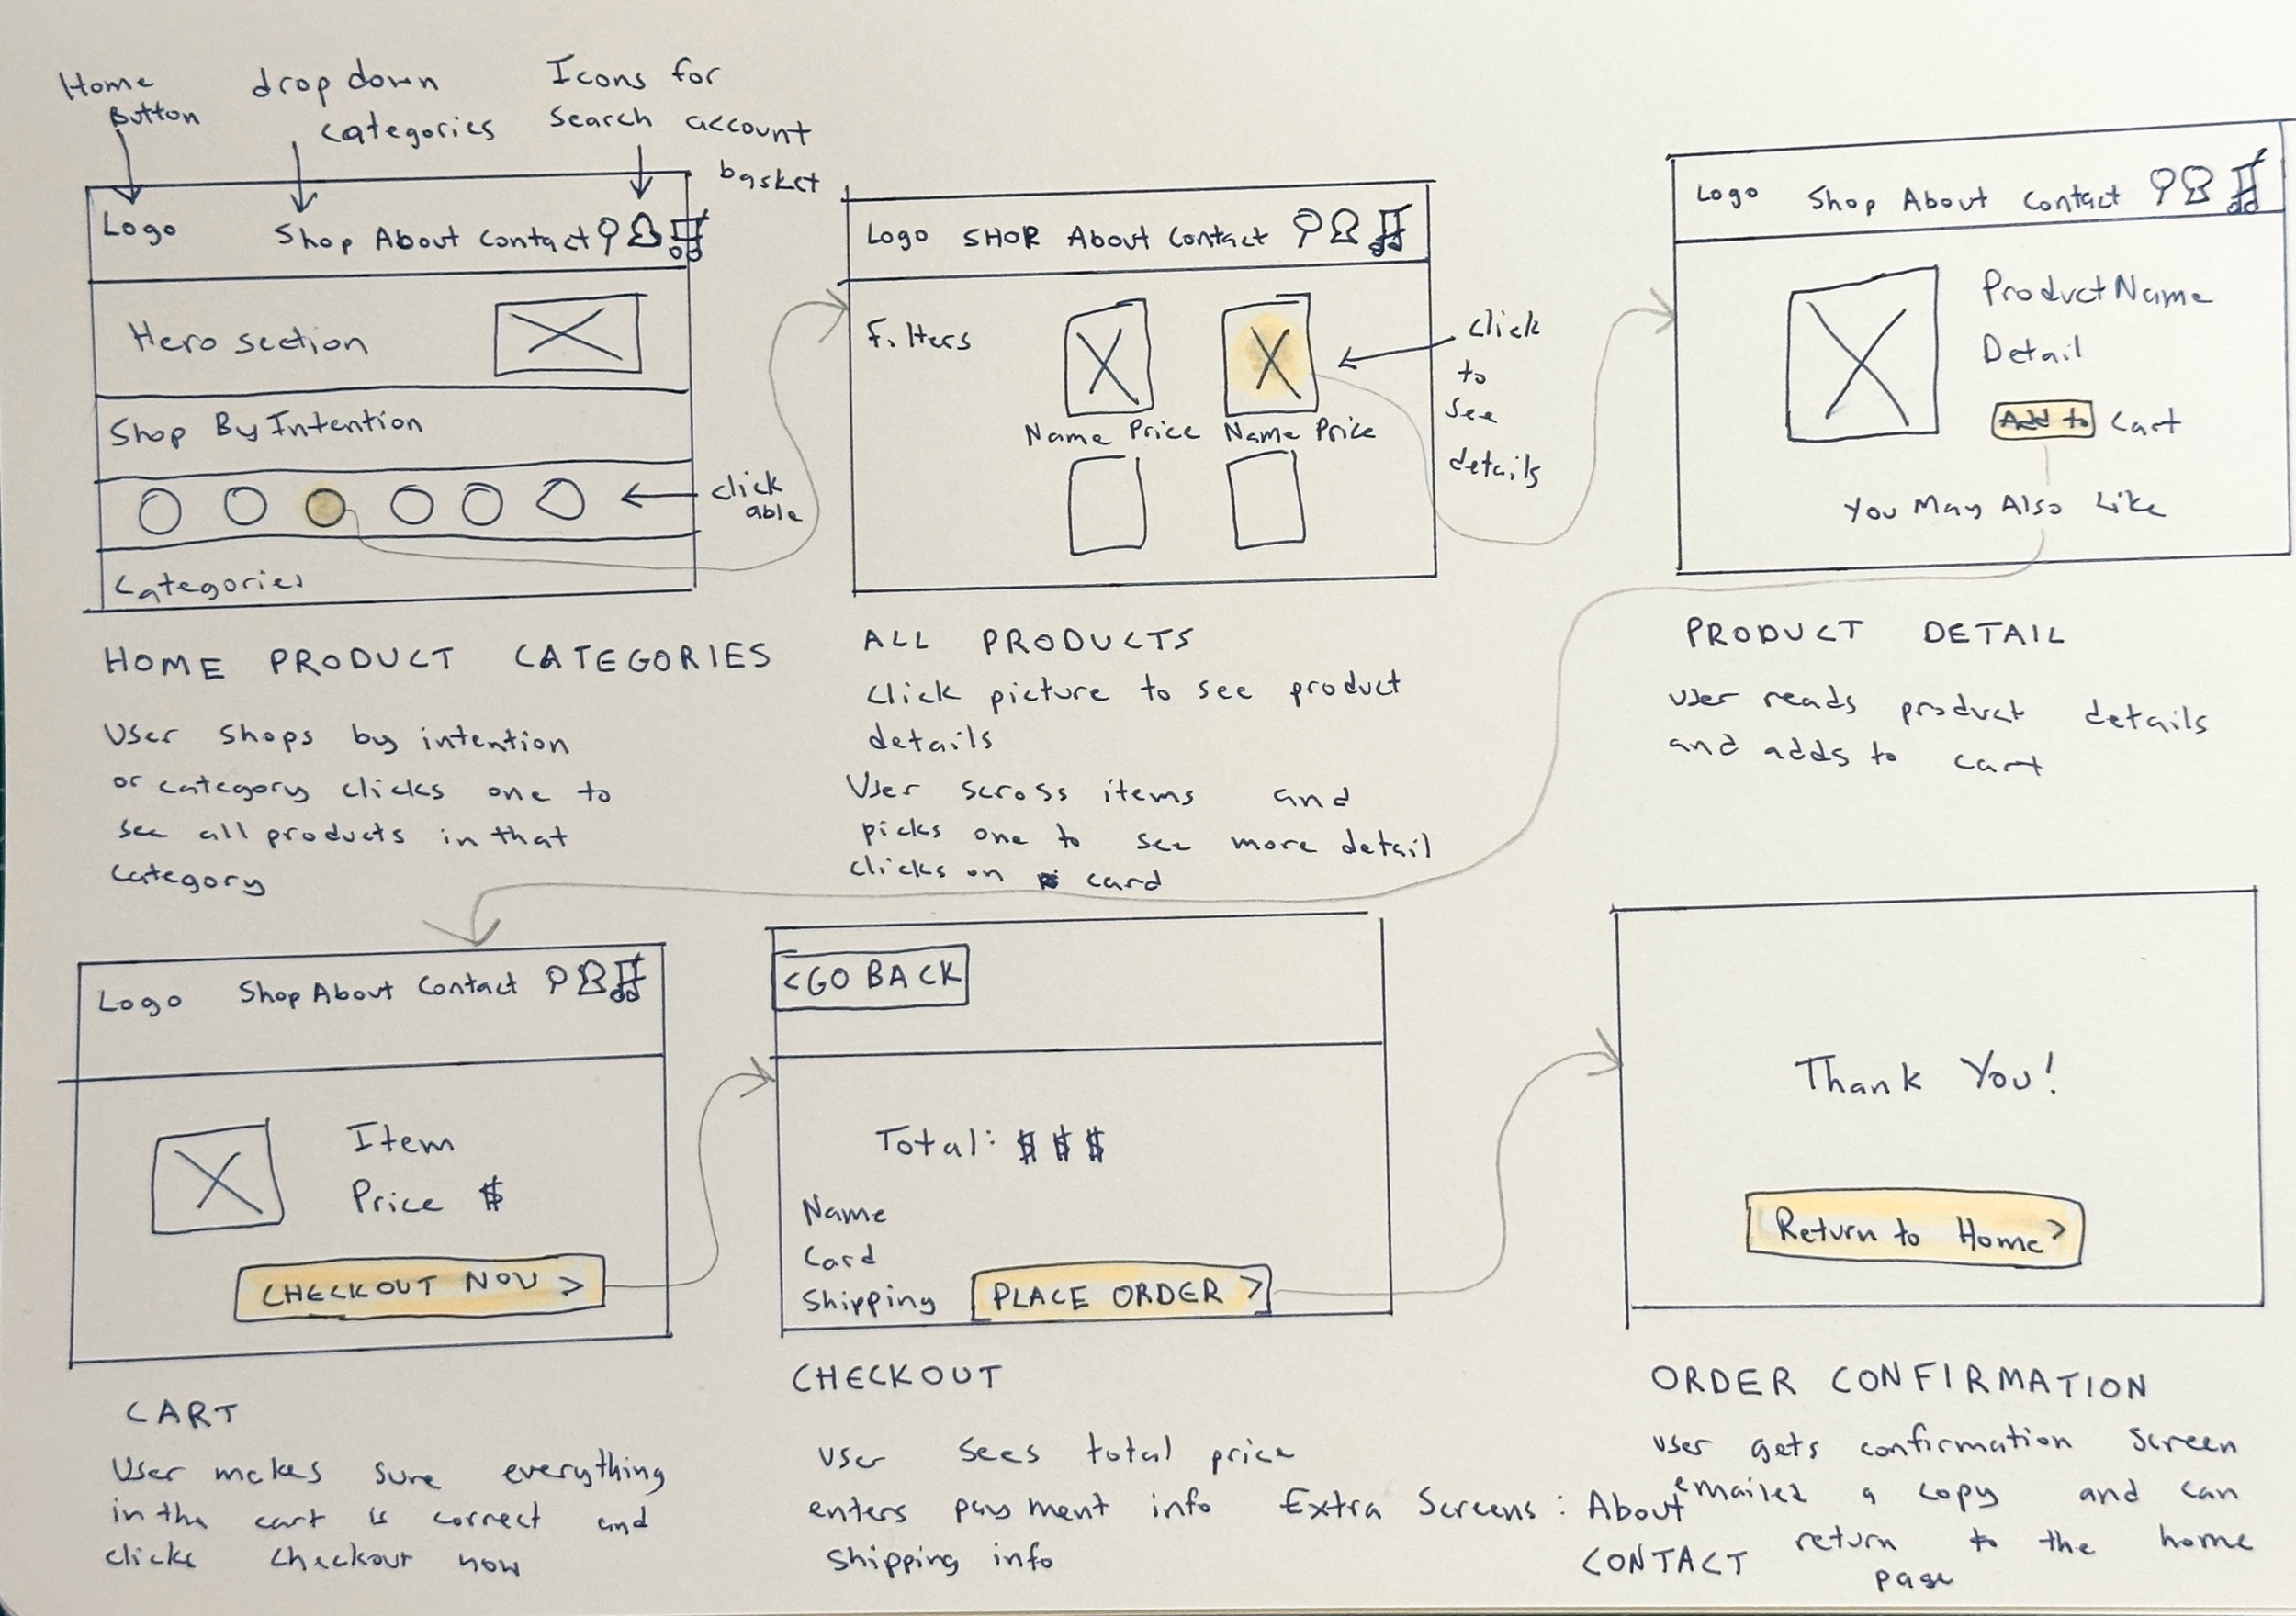 Home
Button
drop down
categories
Icons for
search account
basket
Logo
Shop About Contact
Hero section
Shop By Intention
click
able
Categories
HOME PRODUCT CATEGORIES
User shops by intention
or category clicks one to
see all products in that
category
Logo SHOP About Contact
Filters
click
to
see
details
Name Price Name Price
ALL PRODUCTS
click picture to see product
details
User scross items and
picks one to see more detail
clicks on card
Logo Shop About Contact
Product Name
Detail
Add to Cart
You May Also Like
PRODUCT DETAIL
user reads product details
and adds to cart
Logo Shop About Contact
Item
Price $
CHECKOUT NOW >
CART
User makes sure everything
in the cart is correct and
clicks checkout now
< GO BACK
Total: $ $ $
Name
Card
Shipping
PLACE ORDER >
CHECKOUT
user sees total price
enters payment info
shipping info
Extra Screens: About
CONTACT
Thank You!
Return to Home >
ORDER CONFIRMATION
user gets confirmation screen
emailed a copy and can
return to the home
page